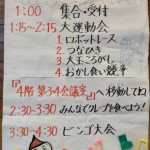 1:00 集合・受付
1:15~2:15 大運動会
1 ロボットレース
2 つなひき
3 大玉ころがし
4 おかし食い競争
『4階 第3・4会議室』へ移動してね
2:30-3:30 みんなでクレープを食べよう!
3:30-4:30 ビンゴ大会